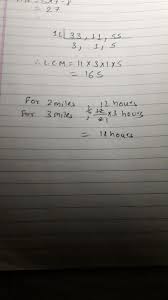 = 27
11 | 33, 11, 55
3, 1, 5
∴ LCM = 11 × 3 × 1 × 5
= 165
For 2 miles, 12 hours
For 3 miles, × 3 hours
= 18 hours